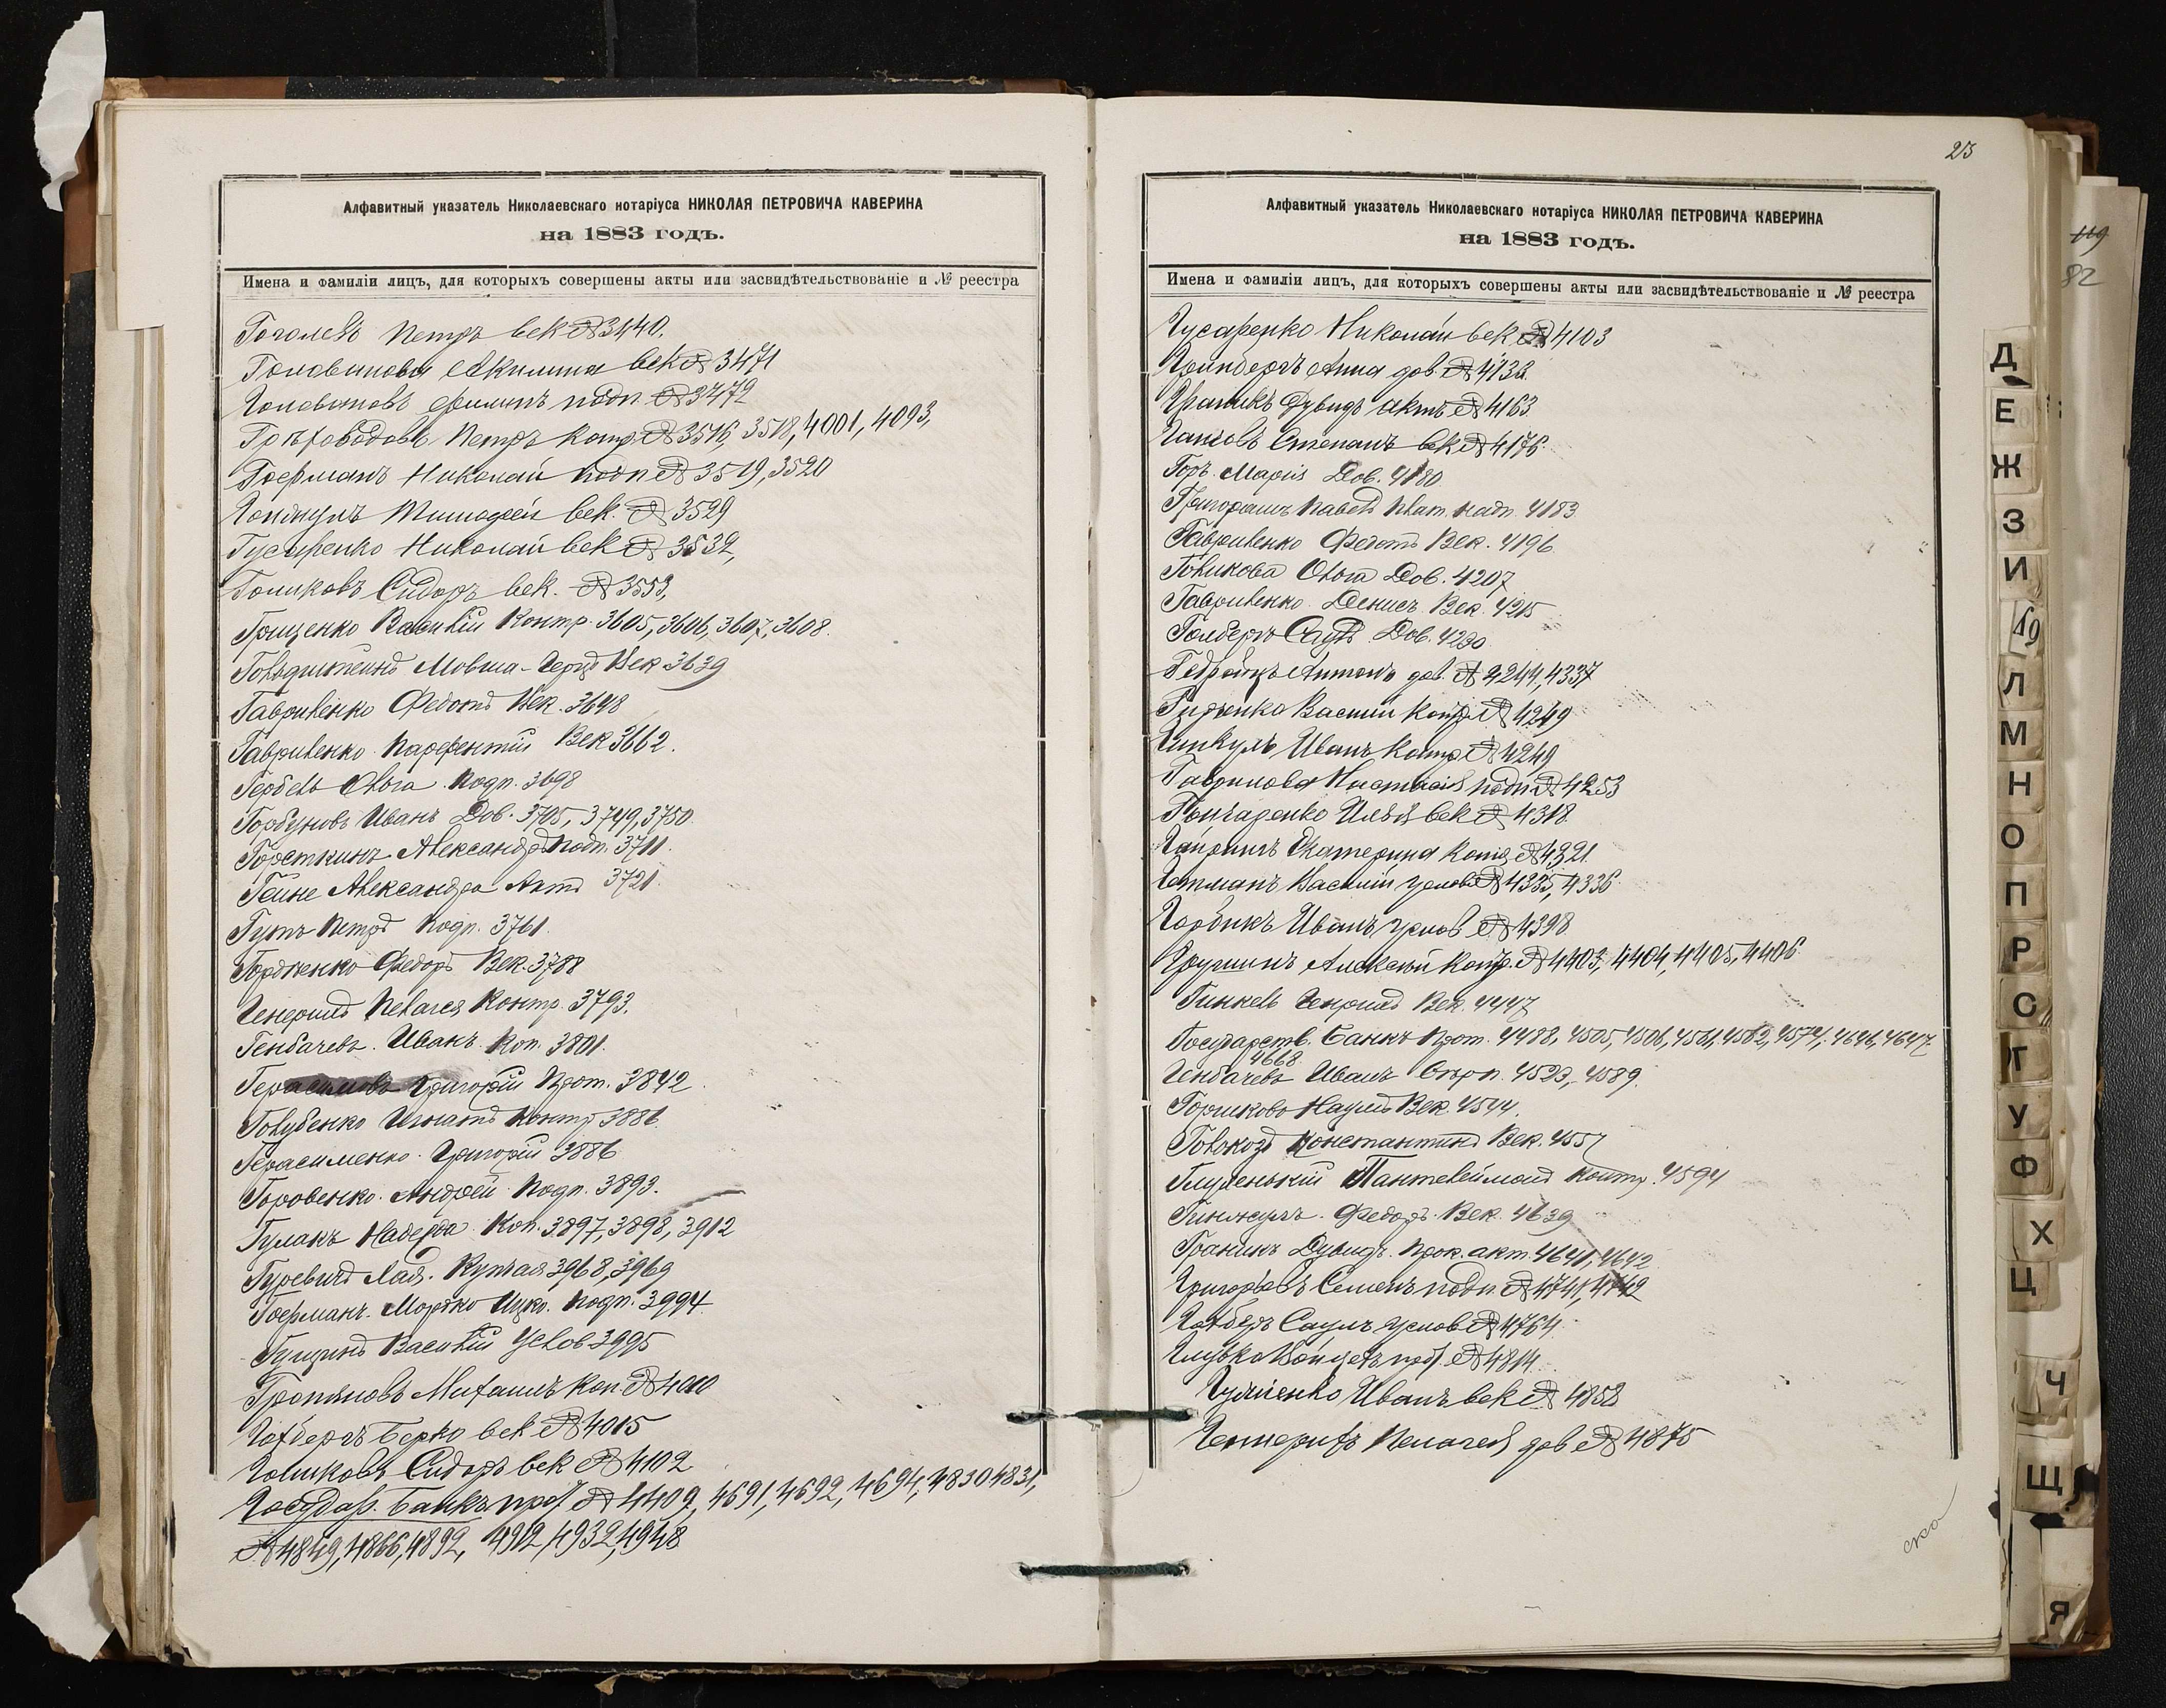 Алфавитный указатель Николаевскаго нотаріуса НИКОЛАЯ ПЕТРОВИЧА КАВЕРИНА
на 1883 годъ.
Имена и фамиліи лицъ, для которыхъ совершены акты или засвидѣтельствованіе и № реестра
Гоголевъ Петръ век № 3440.
Голованова Акилина век № 3471
Головановъ Филипъ подп. № 3472
Петръ контр. № 3516, 3518, 4001, 4093,
Гоерманъ Николай подп № 3519, 3520
Тимофей век. № 3529
Гусаренко Николай век № 3532,
Голиковъ Сидоръ век. № 3553,
Грищенко Василій Контр. 3605, 3606, 3607, 3608.
Гольдштейнъ Мовша-Герцъ Век 3639
Гавриленко Федотъ Век. 3648
Гавриленко Парфентій Век 3662.
Гербель Ольга Подп. 3698
Горбуновъ Иванъ Дов. 3705, 3749, 3750
Горсткинъ Александръ подп. 3711.
Гейне Александра Актъ 3721.
Гутъ Петръ Подп. 3761.
Гордѣенко Федоръ Век. 3788
Пелагея Контр. 3793.
Генбачевъ Иванъ Коп. 3801.
Герасимовъ Григорій Прот. 3842
Голубенко Игнатъ Контр 3886.
Герасименко Григорій 3886
Горовенко Андрей Подп. 3893.
Гулакъ Надежда Коп. 3897, 3898, 3912
Гуревичъ Лая. Купчая 3968, 3969
Гоерманъ Мортко Ицко. подп. 3994
Гущинъ Василій Услов 3995
Михаилъ Коп. № 4010
Голбергъ Берко век № 4015
Голиковъ Сидоръ век № 4102
Государ. Банкъ прот № 4409, 4691, 4692, 4694, 4830 4831,
№ 4849, 4866, 4892, 4912, 4932, 4948
23
Алфавитный указатель Николаевскаго нотаріуса НИКОЛАЯ ПЕТРОВИЧА КАВЕРИНА
на 1883 годъ.
Имена и фамиліи лицъ, для которыхъ совершены акты или засвидѣтельствованіе и № реестра
Гусаренко Николай век № 4103
Гринбергъ Анна дов. №
Граникъ Дувидъ актъ № 4163
Степанъ век № 4176
Горъ Марія Дов. 4180
Григорашъ Павелъ Плат. надп. 4183
Гавриленко Федотъ Век. 4196
Голикова Ольга Дов. 4207
Гавриленко Денисъ Век. 4215
Голбергъ Саулъ Дов. 4230
Гедройцъ Антонъ дов. № 4244, 4337
Василій Контр № 4249
Иванъ Контр № 4249
Гаврилова Настасія подп № 4253
Гончаренко Илья век № 4318
Екатерина Копія № 4321
Гетманъ Василій услов № 4335, 4336
Горбикъ Иванъ услов № 4398
Алексѣй Контр. № 4403, 4404, 4405, 4406
Гинкель Генрихъ Век. 4447
Государств. Банкъ Прот. 4488, 4505, 4506, 4561, 4562, 4574, 4646, 4647
4668
Генбачевъ Иванъ 4523, 4589.
Горшковъ Наумъ Век. 4544.
Голокозъ Константинъ Век. 4557
Глузенькій Пантелеймонъ Контр. 4594
Гинжулъ Федоръ Век. 4639
Граникъ Дувидъ. Прок. акт. 4641, 4642
Григорьевъ Семенъ подп. № 4741, 4742
Голбергъ Саулъ услов № 4764
прот. № 4814
Иванъ век № 4852
Пелагея дов № 4875
119
82
Д
Е
Ж
З
И
Л
М
Н
О
П
Р
С
Т
У
Ф
Х
Ц
Ч
Щ
Я